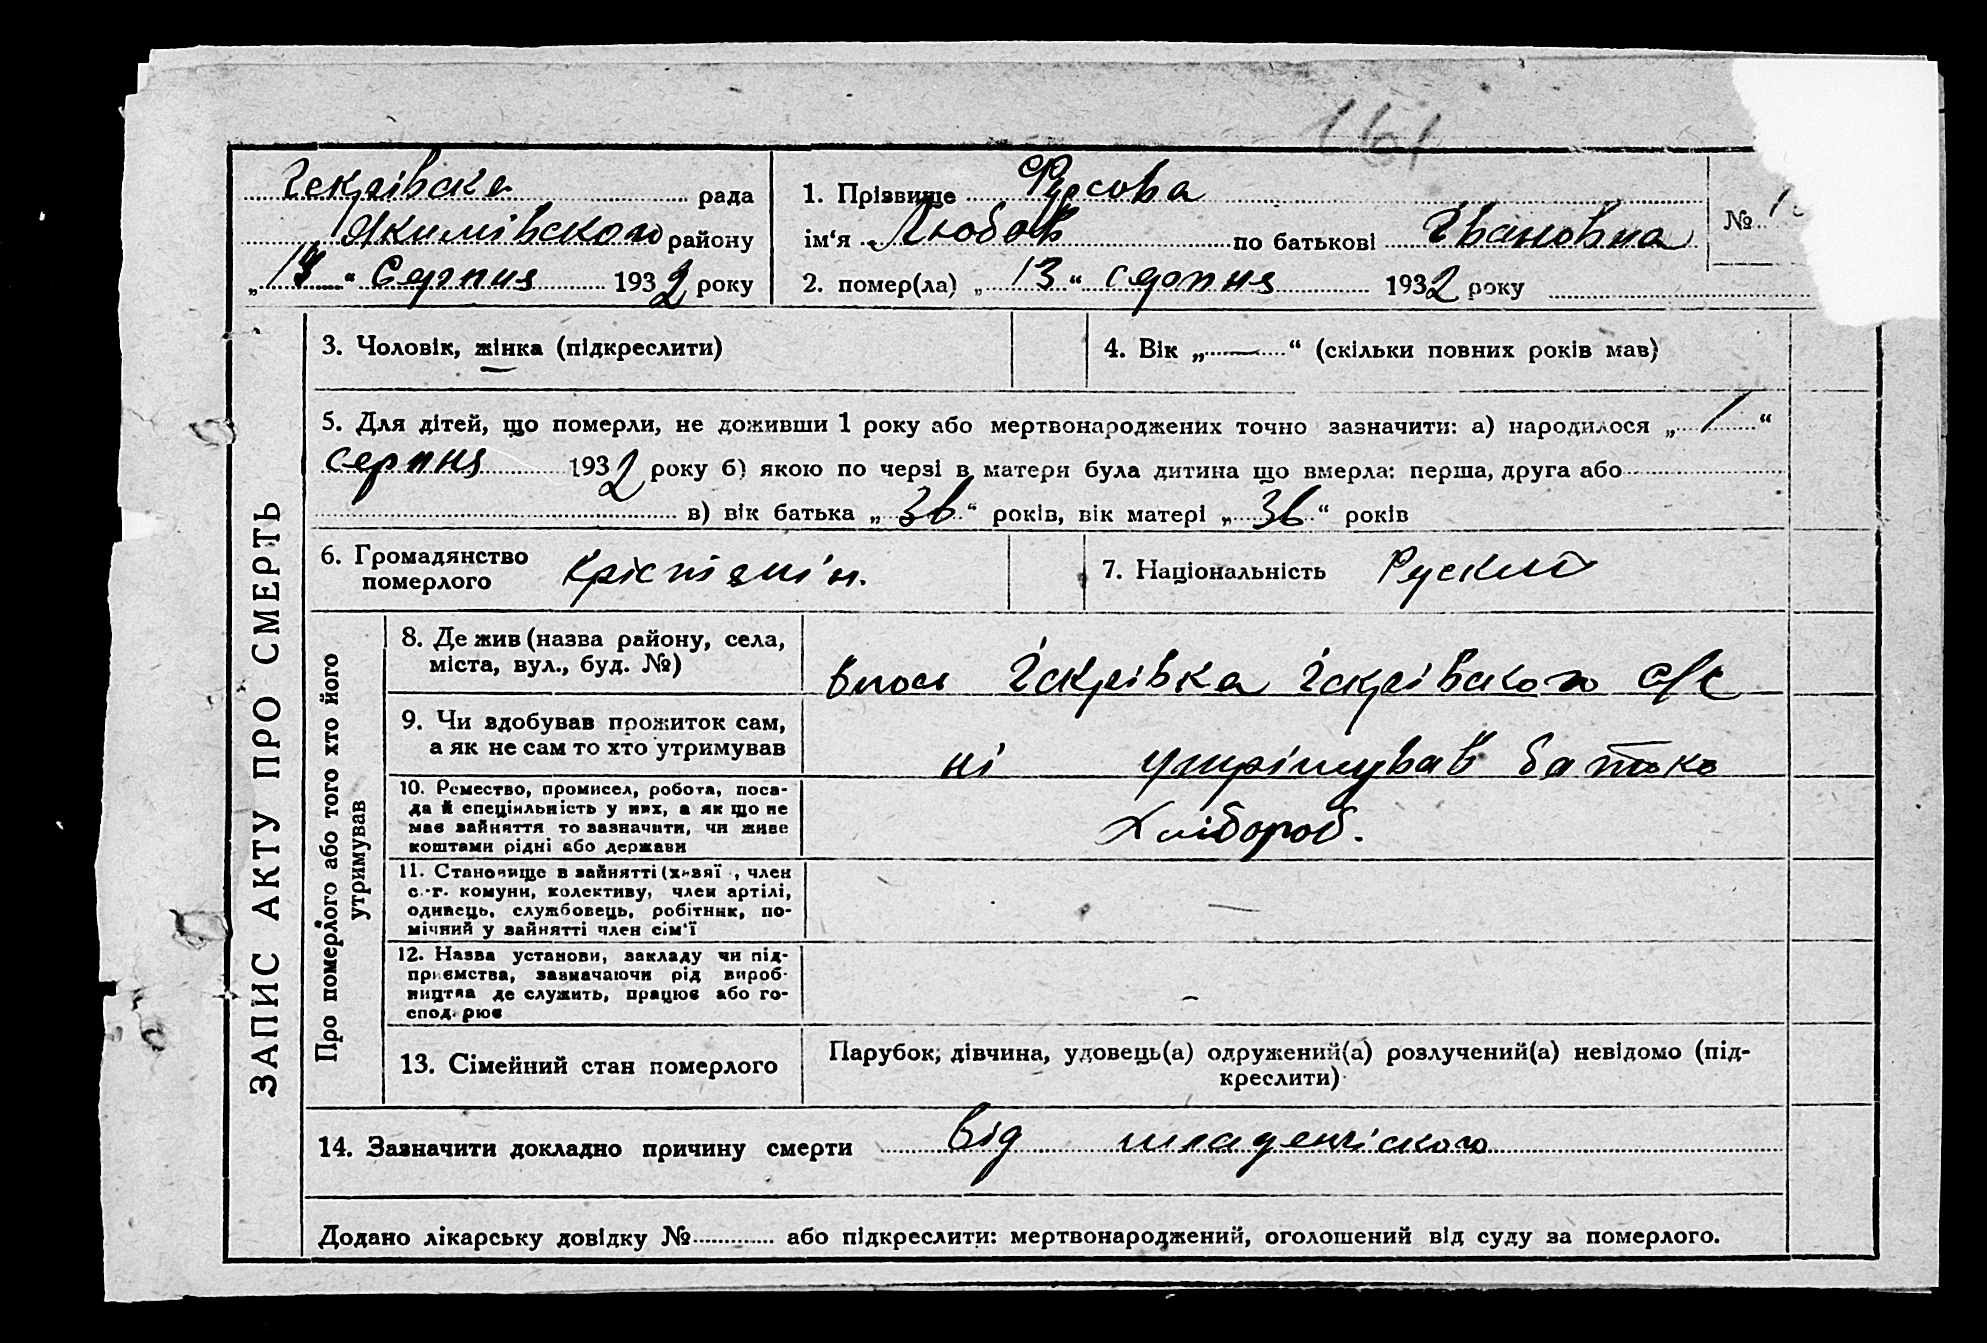 161
Іскрівска рада
Якимівского району
„ 14 “ Серпня 1932 року
1. Прізвище Фурсова
ім‘я Любов по батькові Івановна
2. помер(ла) „ 13 “ серпня 1932 року
№ 1
ЗАПИС АКТУ ПРО СМЕРТЬ
3. Чоловік, жінка (підкреслити)
4. Вік „ — “ (скільки повних років мав)
5. Для дітей, що померли, не доживши 1 року або мертвонароджених точно зазначити: а) народилося „ 1 “
серпня 1932 року б) якою по черзі в матери була дитина що вмерла: перша, друга або
в) вік батька „ 36 “ років, вік матері „ 36 “ років
6. Громадянство
померлого Крістіянін.
7. Національність Руский
Про померлого або того хто його
утримував
8. Де жив (назва району, села,
міста, вул., буд. №)
Іскрівка Іскрівского с/с
9. Чи здобував прожиток сам,
а як не сам то хто утримував
ні утрімував батько
10. Ремество, промисел, робота, поса-
да й спеціяльність у них, а як що не
має зайняття то зазначити, чи живе
коштами рідні або держави
Хлібороб.
11. Становище в зайнятті (хазяї, член
с.-г. комуни, колективу, член артілі,
одинець, службовець, робітник, по-
мічний у зайнятті член сім‘ї
—
12. Назва установи, закладу чи під-
приємства, зазначаючи рід вироб-
ництва де служить, працює або го-
спод.рює
-
13. Сімейний стан померлого
Парубок, дівчина, удовець(а) одружений(а) розлучений(а) невідомо (під-
креслити)
14. Зазначити докладно причину смерти від младенчіского
Додано лікарську довідку № або підкреслити: мертвонароджений, оголошений від суду за померлого.